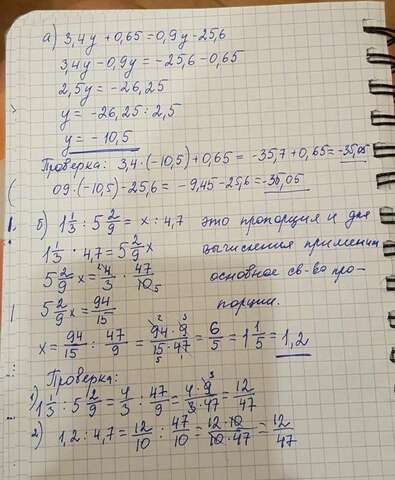 а) 3,4y + 0,65 = 0,9y - 25,6
3,4y - 0,9y = -25,6 - 0,65
2,5y = -26,25
y = -26,25 : 2,5
y = -10,5
Проверка: 3,4·(-10,5)+0,65 = -35,7+0,65 = -35,05
09·(-10,5)-25,6 = -9,45-25,6 = -35,05
б) 1 1/3 : 5 2/9 = x : 4,7 это пропорция и для
1 1/3 · 4,7 = 5 2/9 x вычисления применим
5 2/9 x = 4/3 · 47/10 основное св-во про-
5 2/9 x = 94/15 порции.
x = 94/15 : 47/9 = 94·9/15·47 = 6/5 = 1 1/5 = 1,2
Проверка:
1) 1 1/3 : 5 2/9 = 4/3 : 47/9 = 4·9/3·47 = 12/47
2) 1,2 : 4,7 = 12/10 : 47/10 = 12·10/10·47 = 12/47